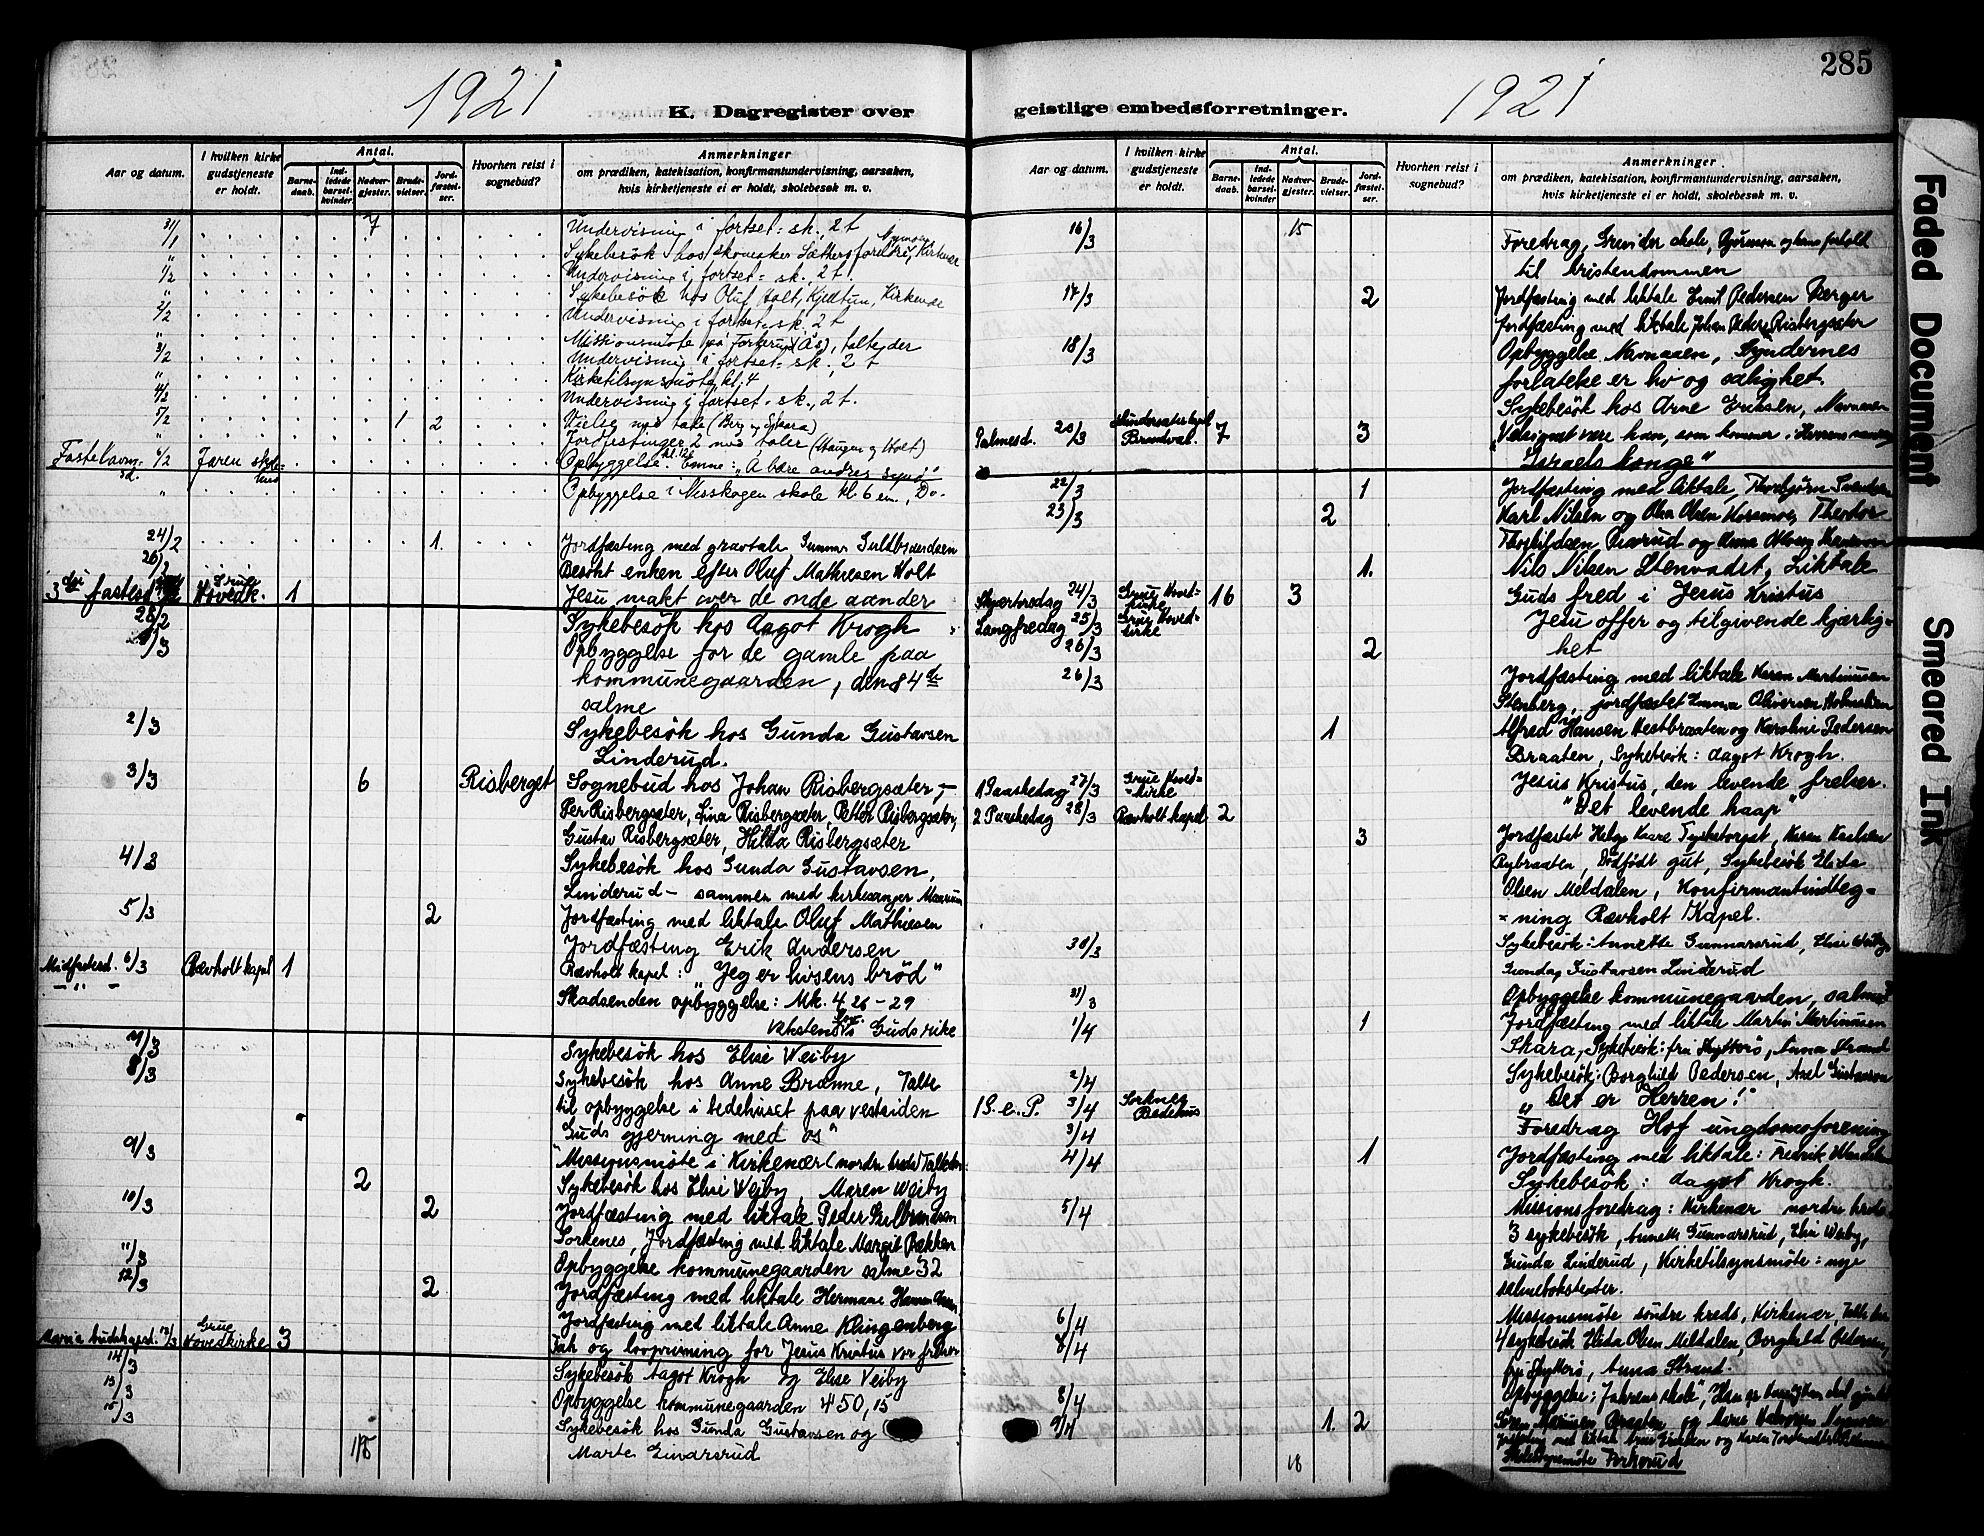 285
1921
K. Dagregister over
Aar og datum.
I hvilken kirke gudstjeneste er holdt.
Antal.
Barnedaab.
Indledede barselkvinder.
Nadvergjester.
Brudevielser.
Jordfæstelser.
Hvorhen reist i sognebud?
Anmerkninger
om prædiken, katekisation, konfirmantundervisning, aarsaken,
hvis kirketjeneste ei er holdt, skolebesøk m. v.
31/1 7 Undervisning i fortset. sk., 2 t
" Sykebesök hos skomaker Sæthers foreldre, Kirkenær
1/2 Undervisning i fortset. sk. 2 t
" Sykebesök hos Oluf Holt, Kirkenær
2/2 Undervisning i fortset. sk. 2 t
" Missionsmöte på (Ås), talte der
3/2 Undervisning i fortset. sk., 2 t
" Kirketilsynsmöte kl. 4
4/2 Undervisning i fortset. sk., 2 t.
5/2 1 2 Vielse m/ tale (Berg og Skara)
" Jordfestinger 2 m/ taler (Haugen og Holt)
Fastelavns- sd. 6/2 Jaren skole- hus Opbyggelse. Emne: "Å bære andres synd"
" Opbyggelse i Nesskogen skole kl 6 em., Do.
24/2 1. Jordfæsting med gravtale Gunnar Guldbrandsen
26/2 Besøkt enken efter Oluf Mathiesen Holt
3die fastesd. Grue Hovedk. 1 Jesu makt over de onde aander
28/2 Sykebesök hos Aagot Krogh
1/3 Opbyggelse for de gamle paa
kommunegaarden, den 84de
salme
2/3 Sykebesök hos Gunda Gustavsen
Linderud.
3/3 6 Risberget Sognebud hos Johan Risbergsæter,
Per Risbergsæter, Lina Risbergsæter, Petter Risbergsæter,
Gustav Risbergsæter, Hilda Risbergsæter
4/3 Sykebesök hos Gunda Gustavsen,
Linderud - sammen med kirkesanger
5/3 2 Jordfæsting med liktale Oluf Mathiesen
Jordfæsting Erik Andersen
Midfastesd. 6/3 Rævholt kapel 1 Rævholt kapel: "Jeg er livsens bröd"
- " - Skadsenden opbyggelse: Mk. 4 26-29
veksten i Guds rike
7/3 Sykebesök hos Elise Weiby
8/3 Sykebesök hos Anne Brænne, Talte
til opbyggelse i bedehuset paa vestsiden
"Guds gjerning med os"
9/3 Missionsmöte i Kirkenær (nordre kreds)
2 Sykebesök hos Elise Weiby, Maren Weiby
10/3 2 Jordfæsting med liktale Peder Gulbrandsen
Sorknes, Jordfæsting med liktale Margit Bækken
11/3 Opbyggelse kommunegaarden salme 32
12/3 2 Jordfæsting med liktale Hermane Hansen
Jordfæsting med liktale Anne Klingenberg
Maria budskapsd. 13/3 Grue Hovedkirke 3 Tak og lovprisning for Jesus Kristus vor frelser
14/3 Sykebesök Aagot Krogh og Elise Veiby
15/3 Opbyggelse kommunegaarden 450, 15
15/3 Sykebesök hos Gunda Gustavsen og
Marte Einarsrud
15
geistlige embedsforretninger.
1921
Aar og datum.
I hvilken kirke gudstjeneste er holdt.
Antal.
Barnedaab.
Indledede barselkvinder
Nadvergjester.
Brudevielser.
Jordfæstelser.
Hvorhen reist i sognebud?
Anmerkninger.
om prædiken, katekisation, konfirmantundervisning, aarsaken,
hvis kirketjeneste ei er holdt, skolebesøk m. v.
16/3 15 Foredrag, Grinder skole, Björnson og hans forhold
til kristendommen
17/3 2 Jordfæsting med liktale Emil Pedersen Berger
Jordfæsting med liktale Johan Pedersen Risbergsæter
18/3 Opbyggelse Navnaaen, Syndernes
forlatelse er liv og salighet.
Sykebesök hos Arne Eriksen, Navnaaen
Palmesd. 20/3 Brandval. 7 3 "Velsignet være han, som kommer i Herrens navn,
Israels konge"
22/3 1 Jordfæsting med liktale, Thorbjørn Svendsen
23/3 2 Karl Nilsen og Olea Olsen, Theodor
og Anna
1. Nils Nilsen Stenvadet, Liktale
Skjærtorsdag 24/3 Grue Hovedkirke 16 3 Guds fred i Jesus Kristus
Langfredag 25/3 Grue Hovedkirke Jesu offer og tilgivende kjærlig-
26/3 2 het
26/3 Jordfæsting med liktale Karen Martinusen
Stenberg, jordfæstet Emma Oliversen
1 Alfred Hansen Hestbraaten og Karoline Pedersen
Braaten, Sykebesök: Aagot Krogh.
1 Paaskedag 27/3 Grue Hovedkirke Jesus Kristus, den levende frelser.
2 Paaskedag 28/3 Rævholt kapel 2 "Det levende haap"
3 Jordfæstet Helge Kaare Tysketorpet, Karen Karlsen
Rybraaten, Dödfödt gut, Sykebesök Elida
Olsen Meldalen, Konfirmantindteg-
-ning Rævholt Kapel.
30/3 Sykebesök: Annette Gunnarsrud, Elise Weiby,
Gunda Gustavsen Linderud
31/3 Opbyggelse kommunegaarden, salme
1/4 1 Jordfæsting med liktale Martin Martinusen
Skara, Sykebesök: fru, Anna Strand
2/4 Sykebesök: Borghild Pedersen, Axel Gustavson
1 S. e. P. 3/4 Sorknes Bedehus "Det er Herren!"
3/4 Foredrag Hof ungdomsforening
4/4 1 Jordfæsting med liktale: Fredrik
Sykebesök: Aagot Krogh.
5/4 Missionsforedrag: Kirkenær nordre kreds
3 sykebesök, Annette Gunnarsrud, Elise Weiby,
Gunda Linderud, Kirketilsynsmöte: nye
salmebokstexter.
6/4 Missionsmöte söndre kreds, Kirkenær, Talte
8/4 4 sykebesök Elida Olsen Meldalen, Borghild Pedersen,
fru, Anna Strand
8/4 Opbyggelse: Jahrens skole,
9/4 1. 2 Sören og Marie
Jordfæsting med liktale
18 Forkerud
Faded Document
Smeared Ink